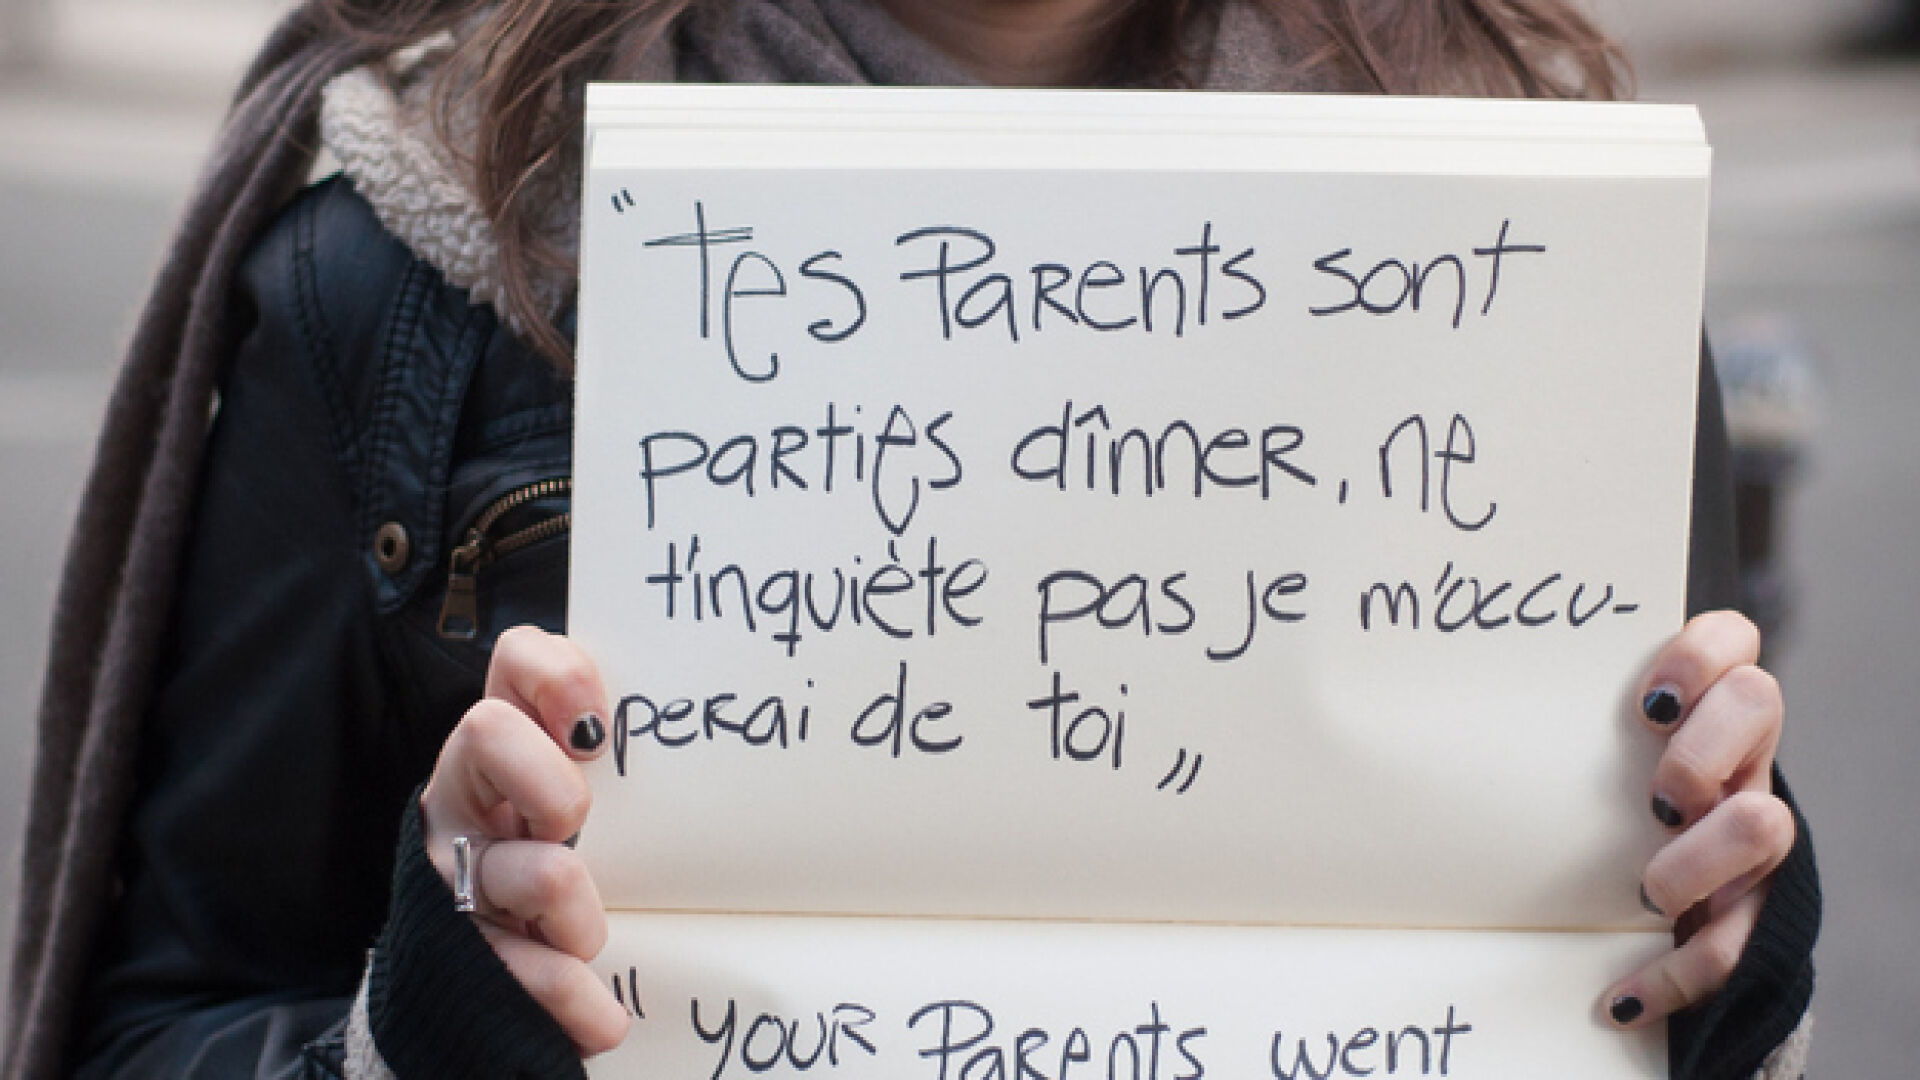 " Tes Parents sont
parties dînner, ne
t'inquiète pas je m'occu-
perai de toi "
" Your Parents went